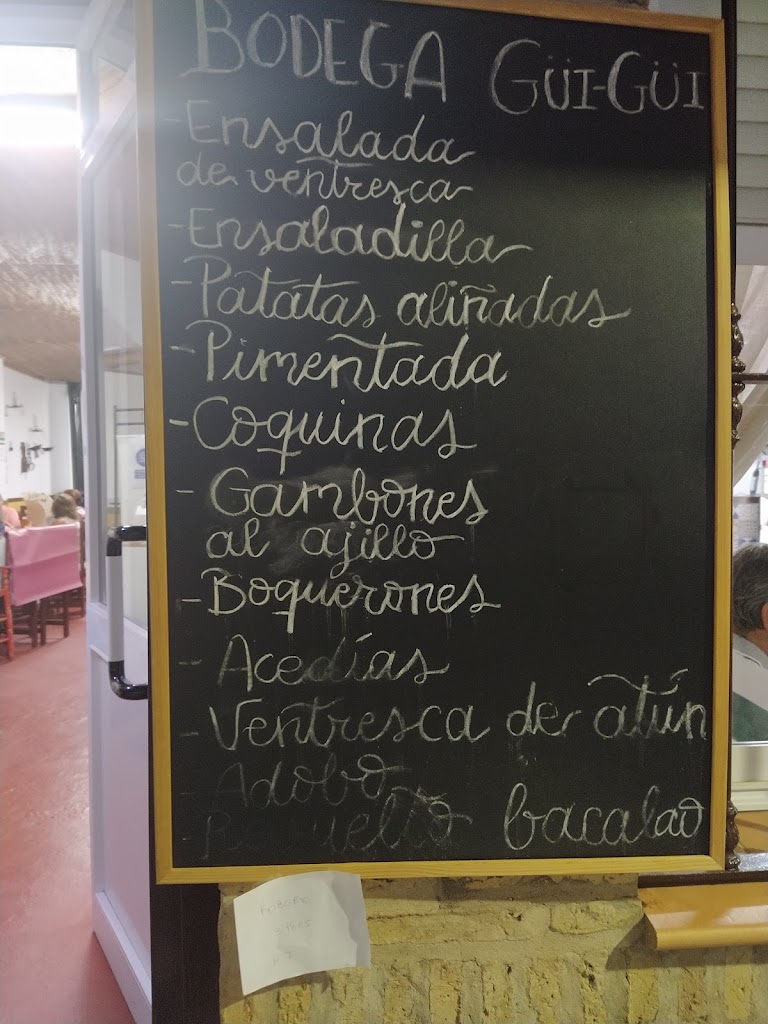 BODEGA GÜI-GÜI
-Ensalada
de ventresca
-Ensaladilla
-Patatas aliñadas
-Pimentada
-Coquinas
-Gambones
al ajillo
-Boquerones
-Acedías
-Ventresca de atún
-Adobo
-Revuelto bacalao